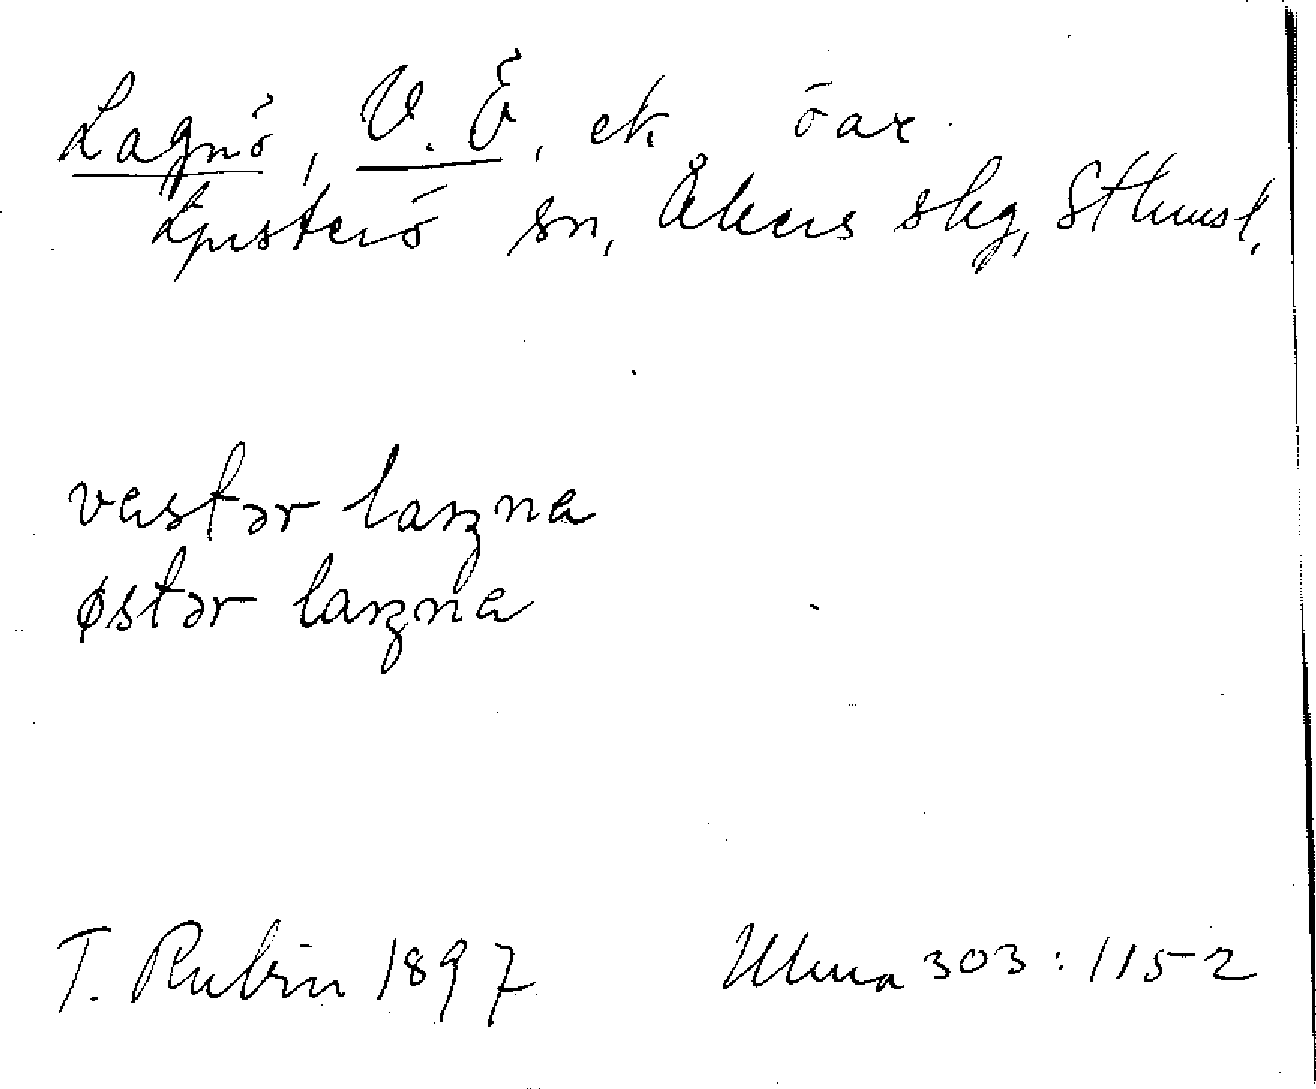 Lagnö, V. Ö, ek öar
Ljusterö sn, Åkers skg, Sthmsl.
vestər laŋna
østər laŋna
T. Rubin 1897 Ulma 303:1152